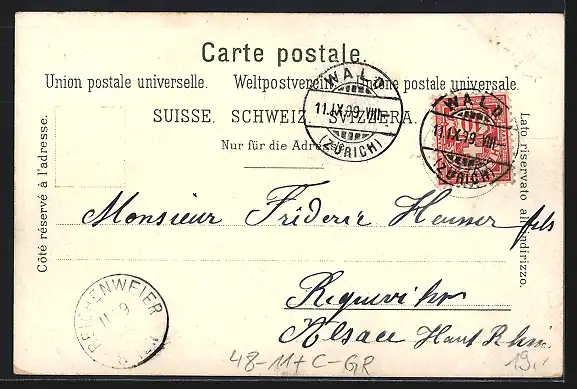 Carte postale.
Union postale universelle. Weltpostverein. Unione postale universale.
SUISSE. SCHWEIZ. SVIZZERA.
Nur für die Adresse
Côté réservé à l'adresse.
Lato riservato all'indirizzo.
WALD
11.IX.99.VIII-
(ZÜRICH)
WALD
11.IX.99.VIII-
(ZÜRICH)
Monsieur Fréderic Heusser fils
Riquewihr
Alsace Haut Rhin
REICHENWEIER
11 9
48-11+C-GR
19.-